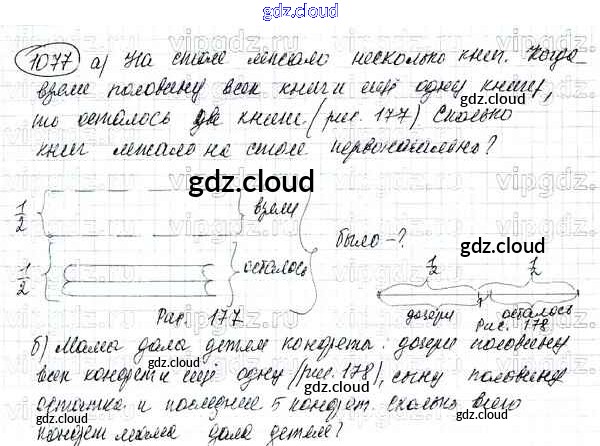 gdz.cloud
1077 а) На столе лежало несколько книг. Когда
взяли половину всех книг и ещё одну книгу,
gdz.cloud
то осталось две книги (рис. 177) Сколько
книг лежало на столе первоначально?
gdz.cloud
1/2 взяли
было -?
gdz.cloud
1/2 осталось
1/2 1/2
дочери осталось
Рис. 177
Рис. 178
gdz.cloud
б) Мама дала детям конфеты: дочери половину
всех конфет и ещё одну (рис. 178), сыну половину
gdz.cloud
остатка и последние 5 конфет. Сколько всего
конфет мама дала детям?
gdz.cloud